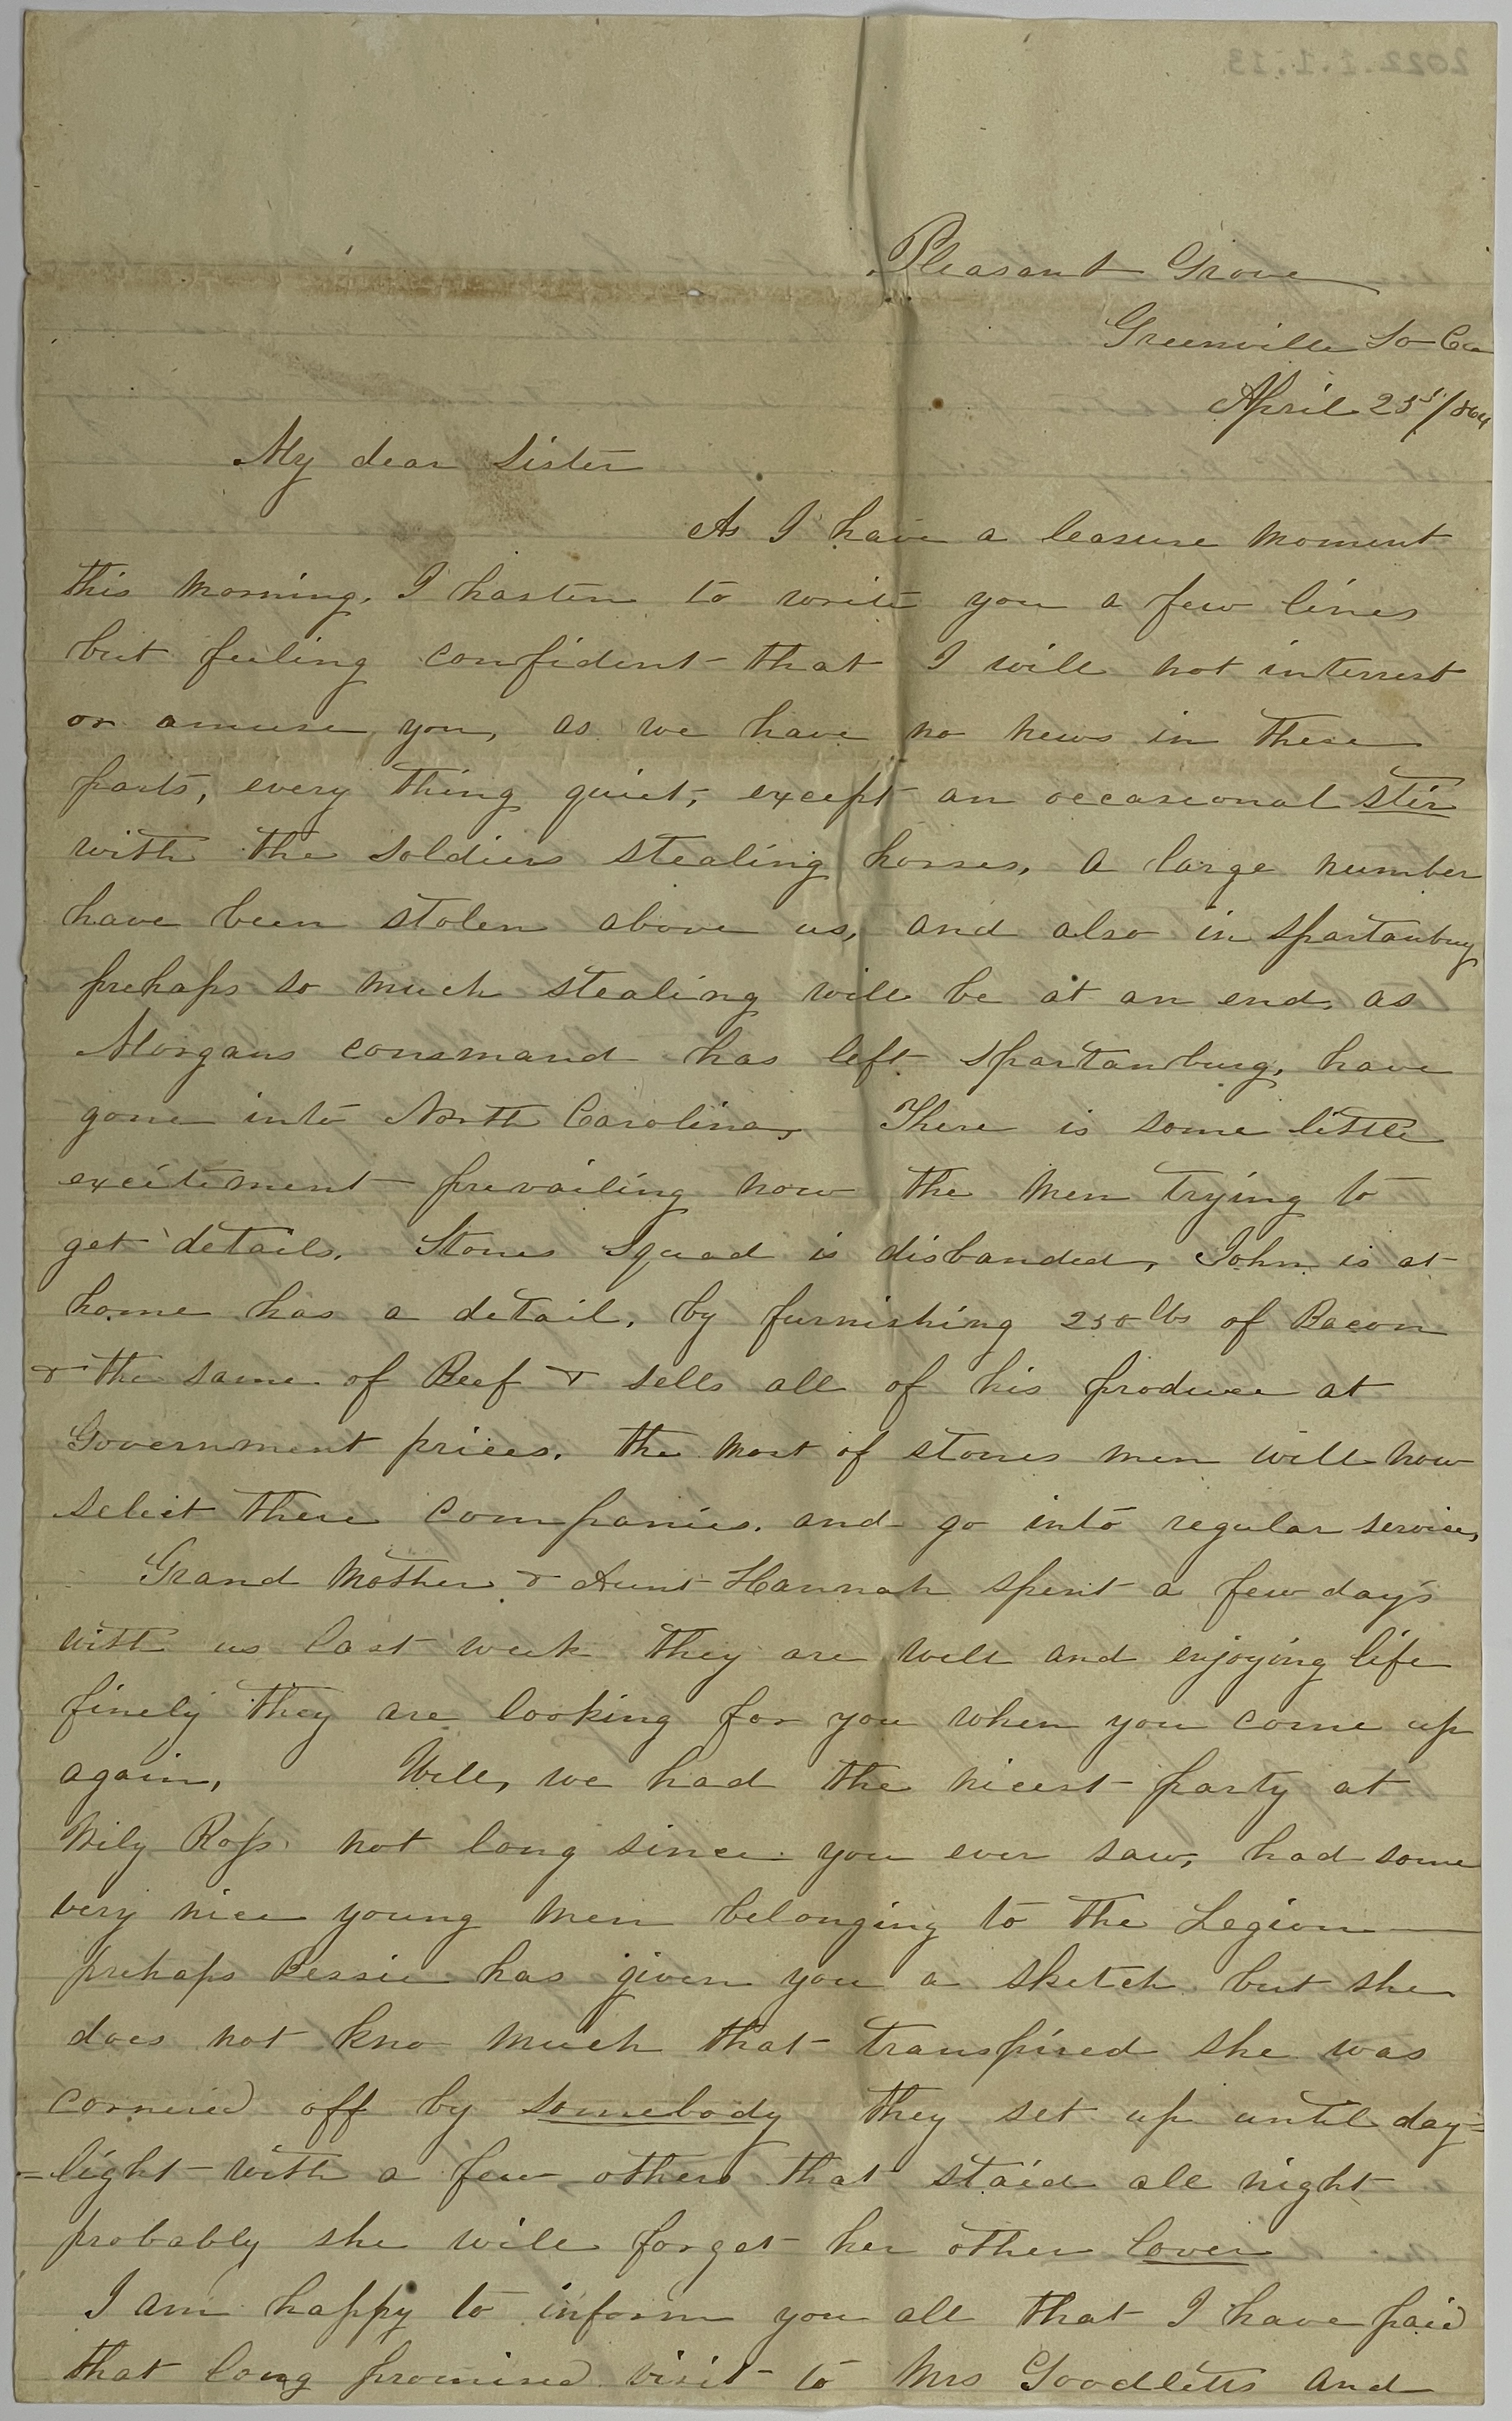 2022.1.1.13
Pleasant Grove
Greenville So Ca
April 25th/64
My dear Sister
As I have a leasure moment
this morning, I hasten to write you a few lines
but feeling confident that I will not interrest
or amuse you, as we have no news in these
parts, every thing quiet, except an occasional stir
with the soldiers stealing horses, a large number
have been stolen above us, and also in Spartanburg
prehaps so much stealing will be at an end, as
Morgans command has left Spartanburg, have
gone into North Carolina, There is some little
excitement prevailing now the men trying to
get details. Stones Squad is disbanded, John is at
home has a detail, by furnishing 250 lbs of Bacon
& the same of Beef & sells all of his produce at
Government prices. the most of stones men will now
select there companies. and go into regular service,
Grand Mother & Aunt Hannah spent a few days
with us last week they are well and enjoying life
finely they are looking for you when you come up
again, Well, we had the nicest party at
Wily Ross not long since you ever saw, had some
very nice young men belonging to the Legion
prehaps Bessie has given you a sketch but she
does not kno much that transpired she was
cornered off by somebody they set up until day=
=light with a few others that staid all night
probably she will forget her other lover
I am happy to inform you all that I have paid
that long promised visit to Mrs Goodletts and